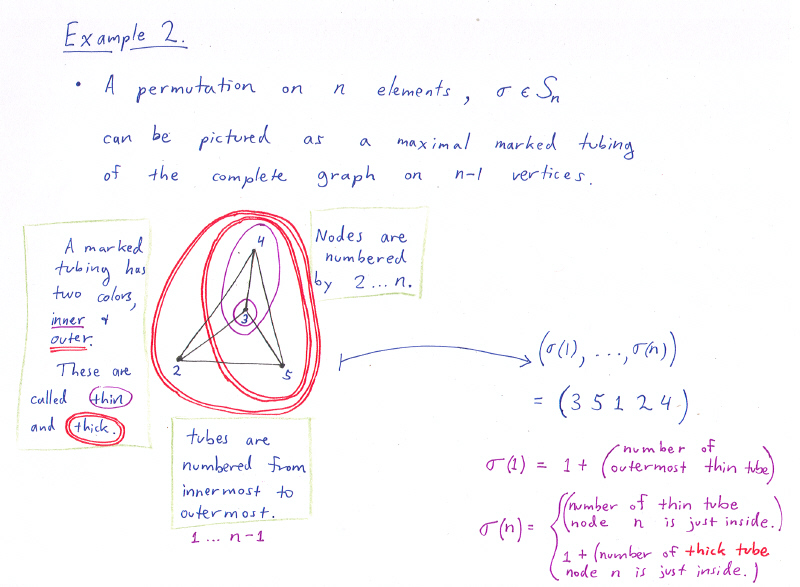 Example 2.
• A permutation on n elements, σ ∈ Sn
can be pictured as a maximal marked tubing
of the complete graph on n-1 vertices.
A marked
tubing has
two colors,
inner &
outer.
These are
called thin
and thick.
4
3
2
5
Nodes are
numbered
by 2 ... n.
tubes are
numbered from
innermost to
outermost.
1 ... n-1
(σ(1), ..., σ(n))
= (3 5 1 2 4)
σ(1) = 1 + (number of
outermost thin tube)
σ(n) = { (number of thin tube
node n is just inside.)
1 + (number of thick tube
node n is just inside.)